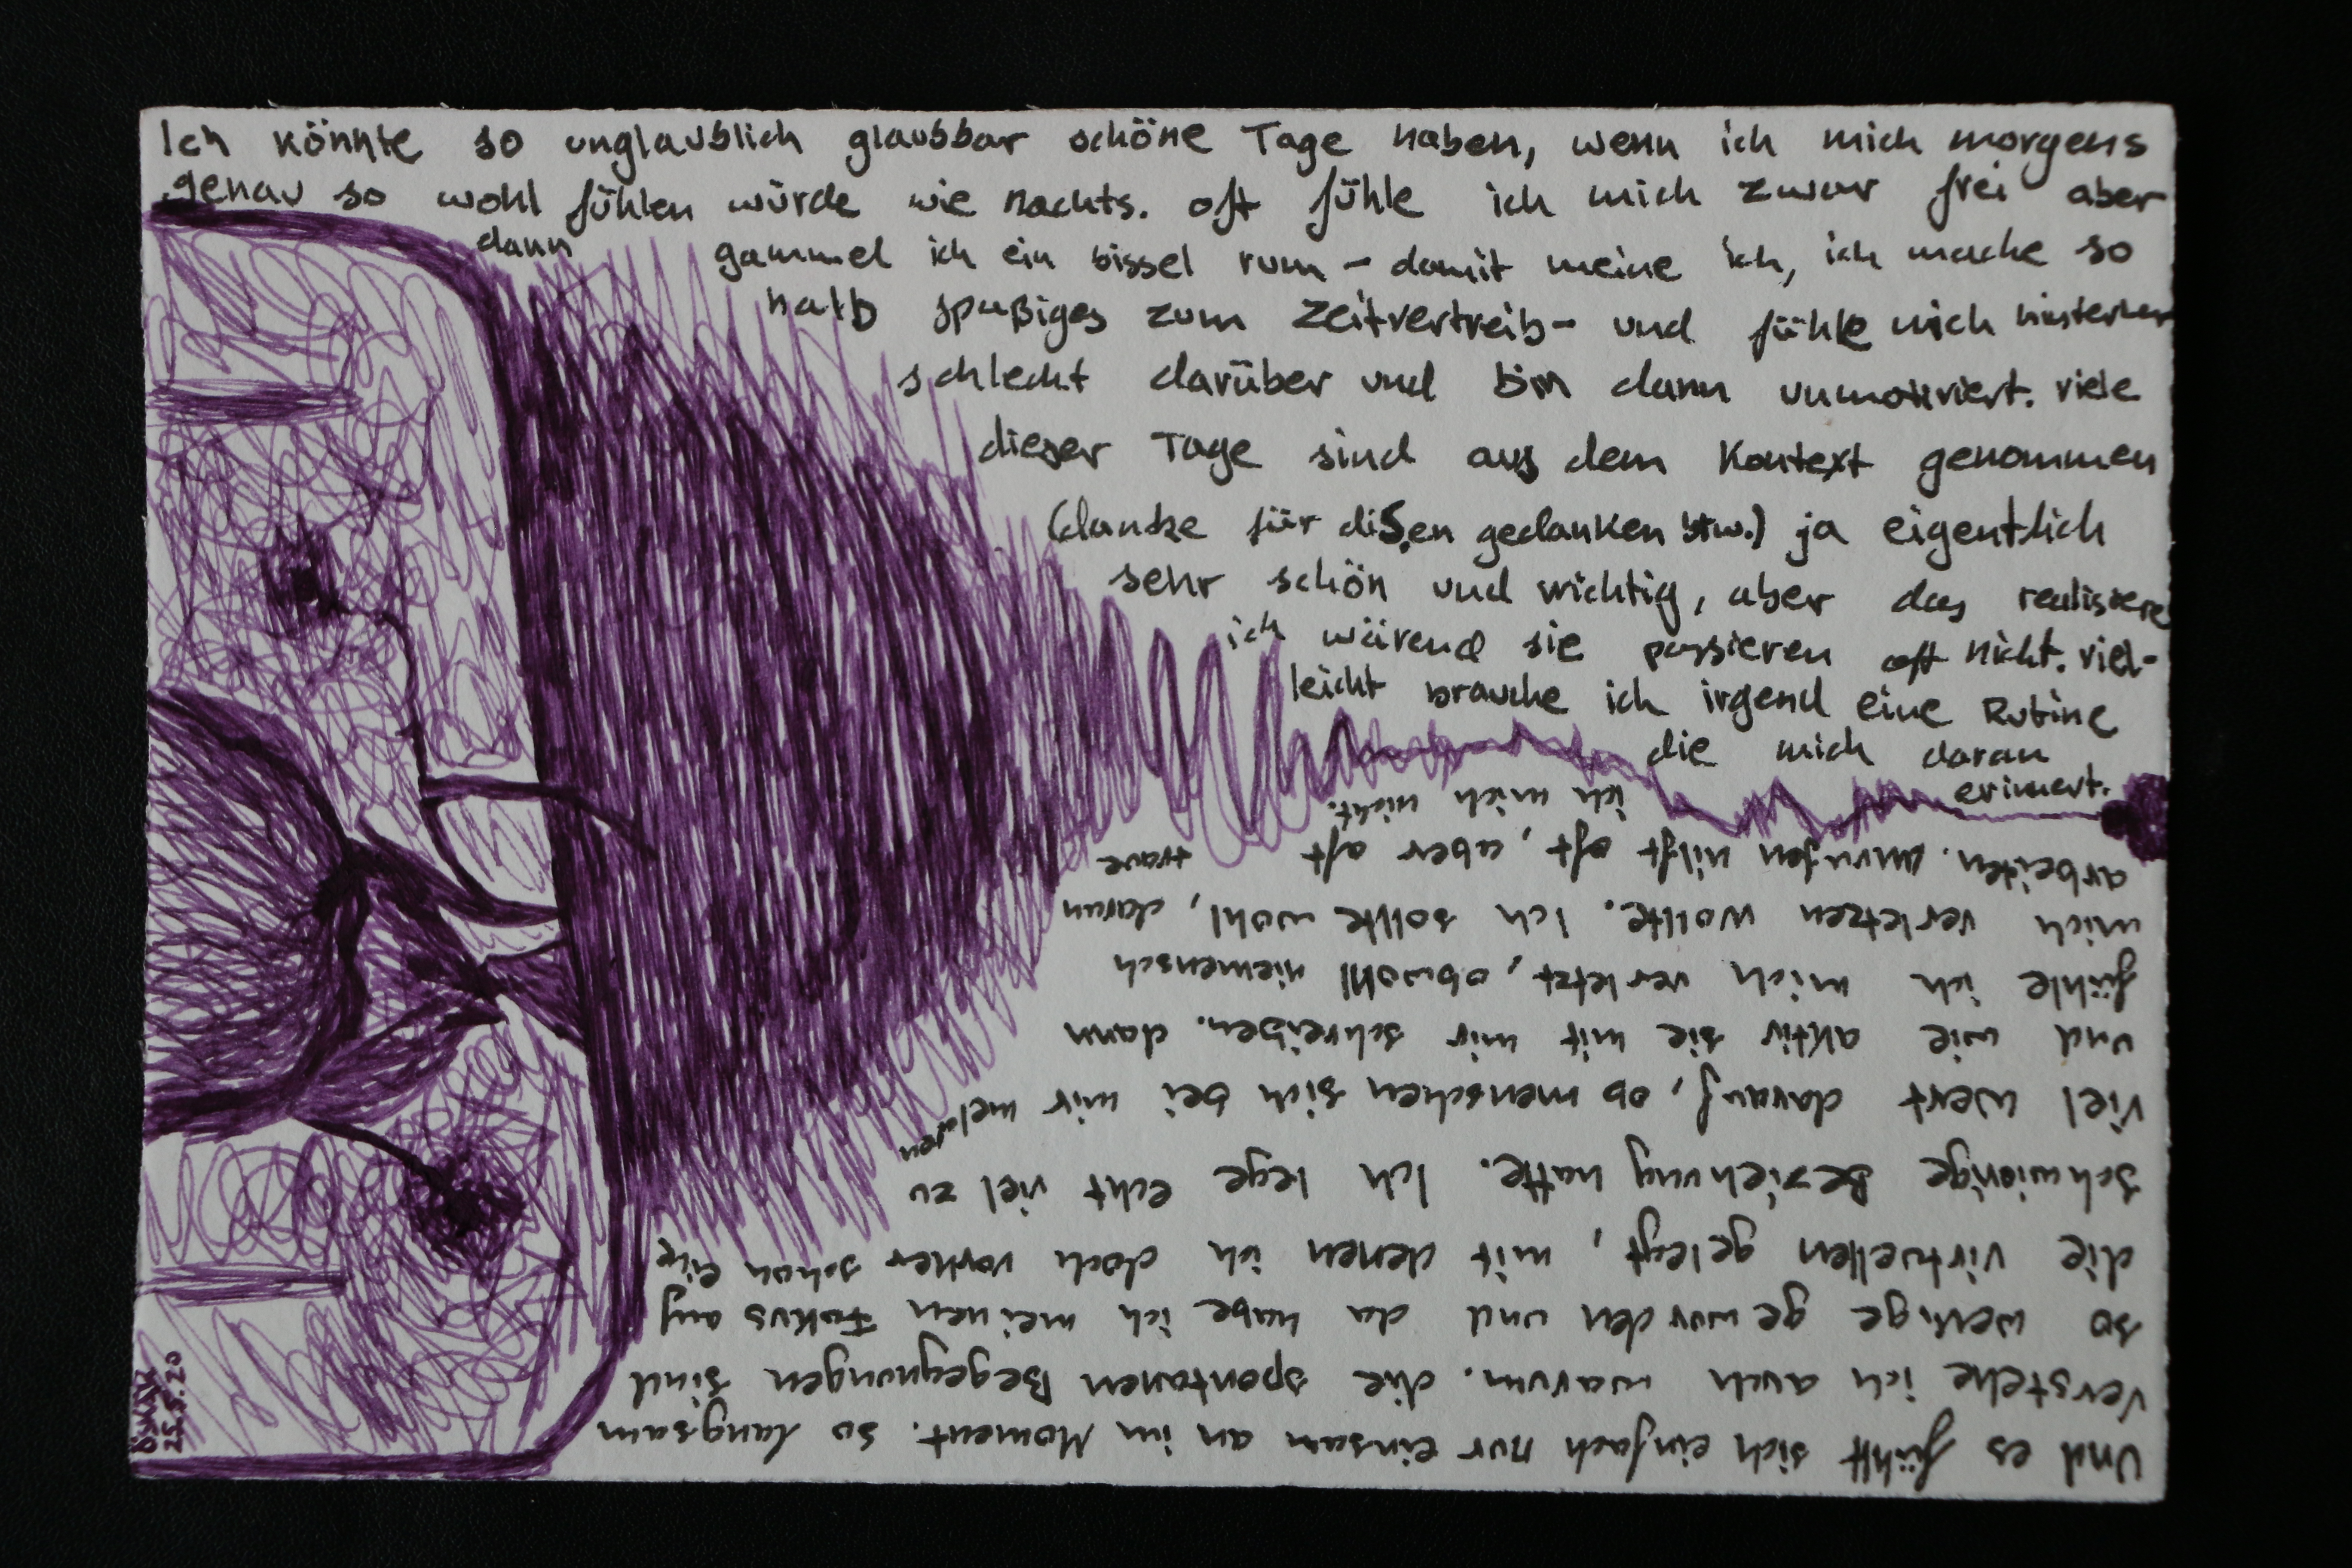 Ich könnte so unglaublich glaubbar schöne Tage haben, wenn ich mich morgens
genau so wohl fühlen würde wie nachts. oft fühle ich mich zwar frei aber
dann gammel ich ein bissel rum - damit meine ich, ich mache so
halb spaßiges zum Zeitvertreib - und fühle mich hinterher
schlecht darüber und bin dann unmotiviert. viele
dieser Tage sind aus dem Kontext genommen
(danke für diesen gedanken btw.) ja eigentlich
sehr schön und wichtig, aber das realisiere
ich wärend sie passieren oft nicht. viel-
leicht brauche ich irgend eine Rutine
die mich daran
erinnert.
Und es fühlt sich einfach nur einsam an im Moment. so langsam
verstehe ich auch warum. die spontanen Begegnungen sind
so wenige geworden und da habe ich meinen Fokus auf
die virtuellen gelegt, mit denen ich doch vorher schon eine
schwierige Beziehung hatte. Ich lege echt viel zu
viel wert darauf, ob menschen sich bei mir melden
und wie aktiv sie mit mir schreiben. dann
fühle ich mich verletzt, obwohl niemensch
mich verletzen wollte. Ich sollte wohl, daran
arbeiten. anrufen hilft oft, aber oft traue
ich mich nicht.
25.5.20